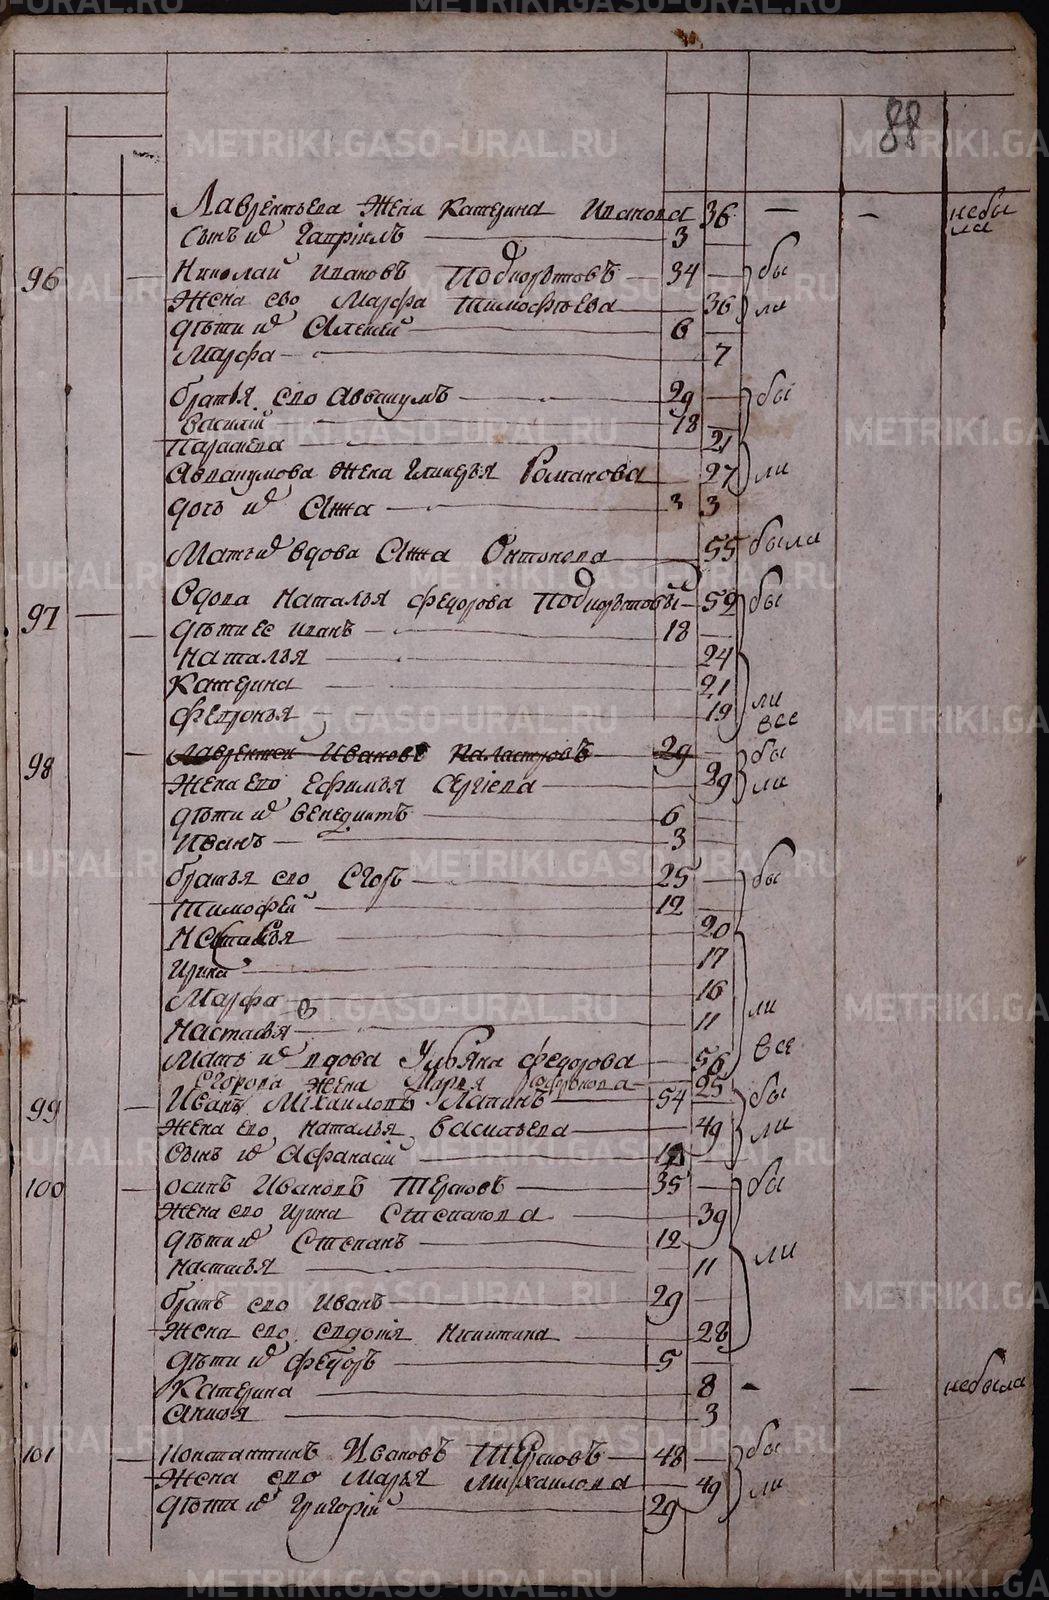 88
Лаврентьева Жена Катерина Иванова 36 — — небы
ла
Сынъ их Гаврiилъ 3
96 Николай Ивановъ 34 бы
Жена ево Марфа Тимофѣева 36 ли
дѣти их Алексей 6
Марфа 7
братья ево Аввакумъ 29 бы
Василiй 18
Параскева 21
Аввакумова жена Гликерья Романова 27 ли
дочь их Анна 3 3
Мать их вдова Анна Антонова 55 была
97 Вдова Наталья Федорова 59 бы
дѣти ее Иванъ 18
Наталья 24
Катерина 21
Федронья 19 ли
все
98 Лаврентей Ивановъ 29 бы
Жена ево Ефимья Сергiева 29 ли
дѣти их Венедиктъ 6
Иванъ 3
братья ево Егоръ 25 бы
Тимофей 12
Наталья 20
Ирина 17
Марфа 16 ли
Настасья 11
Мать их вдова Ульяна Федорова 56 все
Егорова жена Марья 25
99 Иванъ Михаиловъ Лапинъ 54 бы
Жена ево Наталья Васильева 49 ли
Сынъ их Афанасiй
100 Осипъ Ивановъ 35 бы
Жена ево Ирина Степанова 39
дѣти их Степанъ 12 ли
Настасья 11
братъ ево Иванъ 29
Жена ево Евдокiя Никитина 28
дѣти их Федоръ 5
Катерина 8 — — небыла
Анисья 3
101 Константинъ Ивановъ 48 бы
Жена ево Марья Михаилова 49 ли
дѣти их Григорiй 29
METRIKI.GASO-URAL.RU